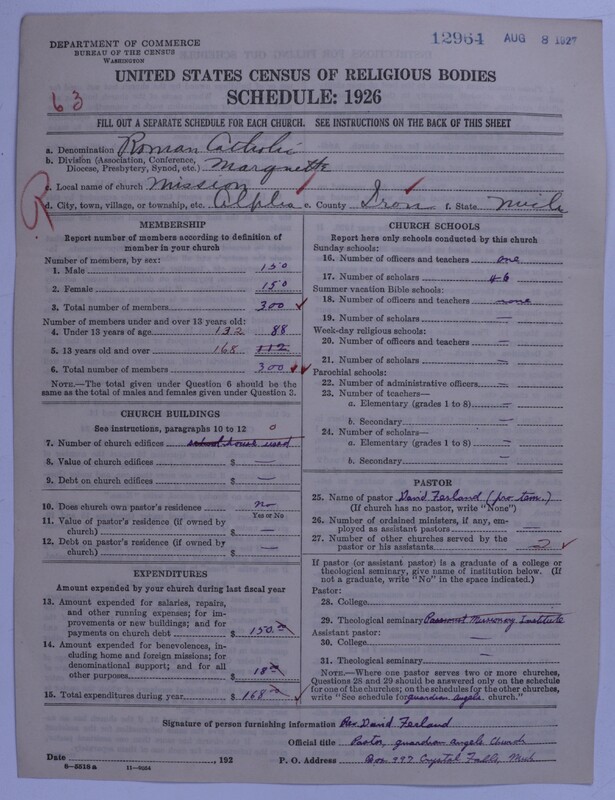 DEPARTMENT OF COMMERCE
BUREAU OF THE CENSUS
WASHINGTON
12964 AUG 8 1927
UNITED STATES CENSUS OF RELIGIOUS BODIES
SCHEDULE: 1926
63
FILL OUT A SEPARATE SCHEDULE FOR EACH CHURCH. SEE INSTRUCTIONS ON THE BACK OF THIS SHEET
a. Denomination Roman Catholic
b. Division (Association, Conference,
Diocese, Presbytery, Synod, etc.) Marquette
c. Local name of church Mission
d. City, town, village, or township, etc. Alpha e. County Iron f. State Mich
MEMBERSHIP
Report number of members according to definition of
member in your church
Number of members, by sex:
1. Male 150
2. Female 150
3. Total number of members 300
Number of members under and over 13 years old:
4. Under 13 years of age 132 88
5. 13 years old and over 168 112
6. Total number of members 300
NOTE.—The total given under Question 6 should be
same as the total of males and females given under Question 3.
CHURCH BUILDINGS
See instructions, paragraphs 10 to 12 0
7. Number of church edifices school house used
8. Value of church edifices $ —
9. Debt on church edifices $ —
10. Does church own pastor's residence no
Yes or No
11. Value of pastor's residence (if owned by
church) $ —
12. Debt on pastor's residence (if owned by
church) $ —
EXPENDITURES
Amount expended by your church during last fiscal year
13. Amount expended for salaries, repairs,
and other running expenses; for im-
provements or new buildings; and for
payments on church debt $ 150.
14. Amount expended for benevolences, in-
cluding home and foreign missions; for
denominational support; and for all
other purposes $ 18
15. Total expenditures during year $ 168
CHURCH SCHOOLS
Report here only schools conducted by this church
Sunday schools:
16. Number of officers and teachers one
17. Number of scholars 46
Summer vacation Bible schools:
18. Number of officers and teachers none
19. Number of scholars —
Week-day religious schools:
20. Number of officers and teachers —
21. Number of scholars —
Parochial schools:
22. Number of administrative officers —
23. Number of teachers—
a. Elementary (grades 1 to 8) —
b. Secondary —
24. Number of scholars—
a. Elementary (grades 1 to 8) —
b. Secondary —
PASTOR
25. Name of pastor David Ferland (pro tem.)
(If church has no pastor, write "None")
26. Number of ordained ministers, if any, em-
ployed as assistant pastors —
27. Number of other churches served by the
pastor or his assistants 2
If pastor (or assistant pastor) is a graduate of a college or
theological seminary, give name of institution below. (If
not a graduate, write "No" in the space indicated.)
Pastor:
28. College
29. Theological seminary Passionist Missionary Institute
Assistant pastor:
30. College —
31. Theological seminary —
NOTE.—Where one pastor serves two or more churches,
Questions 28 and 29 should be answered only on the schedule
for one of the churches; on the schedules for the other churches,
write "See schedule for guardian angels church."
Signature of person furnishing information Rev. David Ferland
Official title Pastor, guardian angels Church
Date , 192 P. O. Address Box 997 Crystal Falls, Mich
8—5518a 11—9264